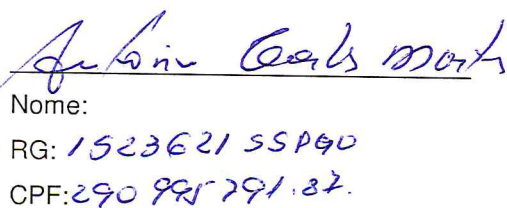 Antonio Carlos
Nome:
RG: 1523621 SSPGO
CPF: 290 995 791.87.